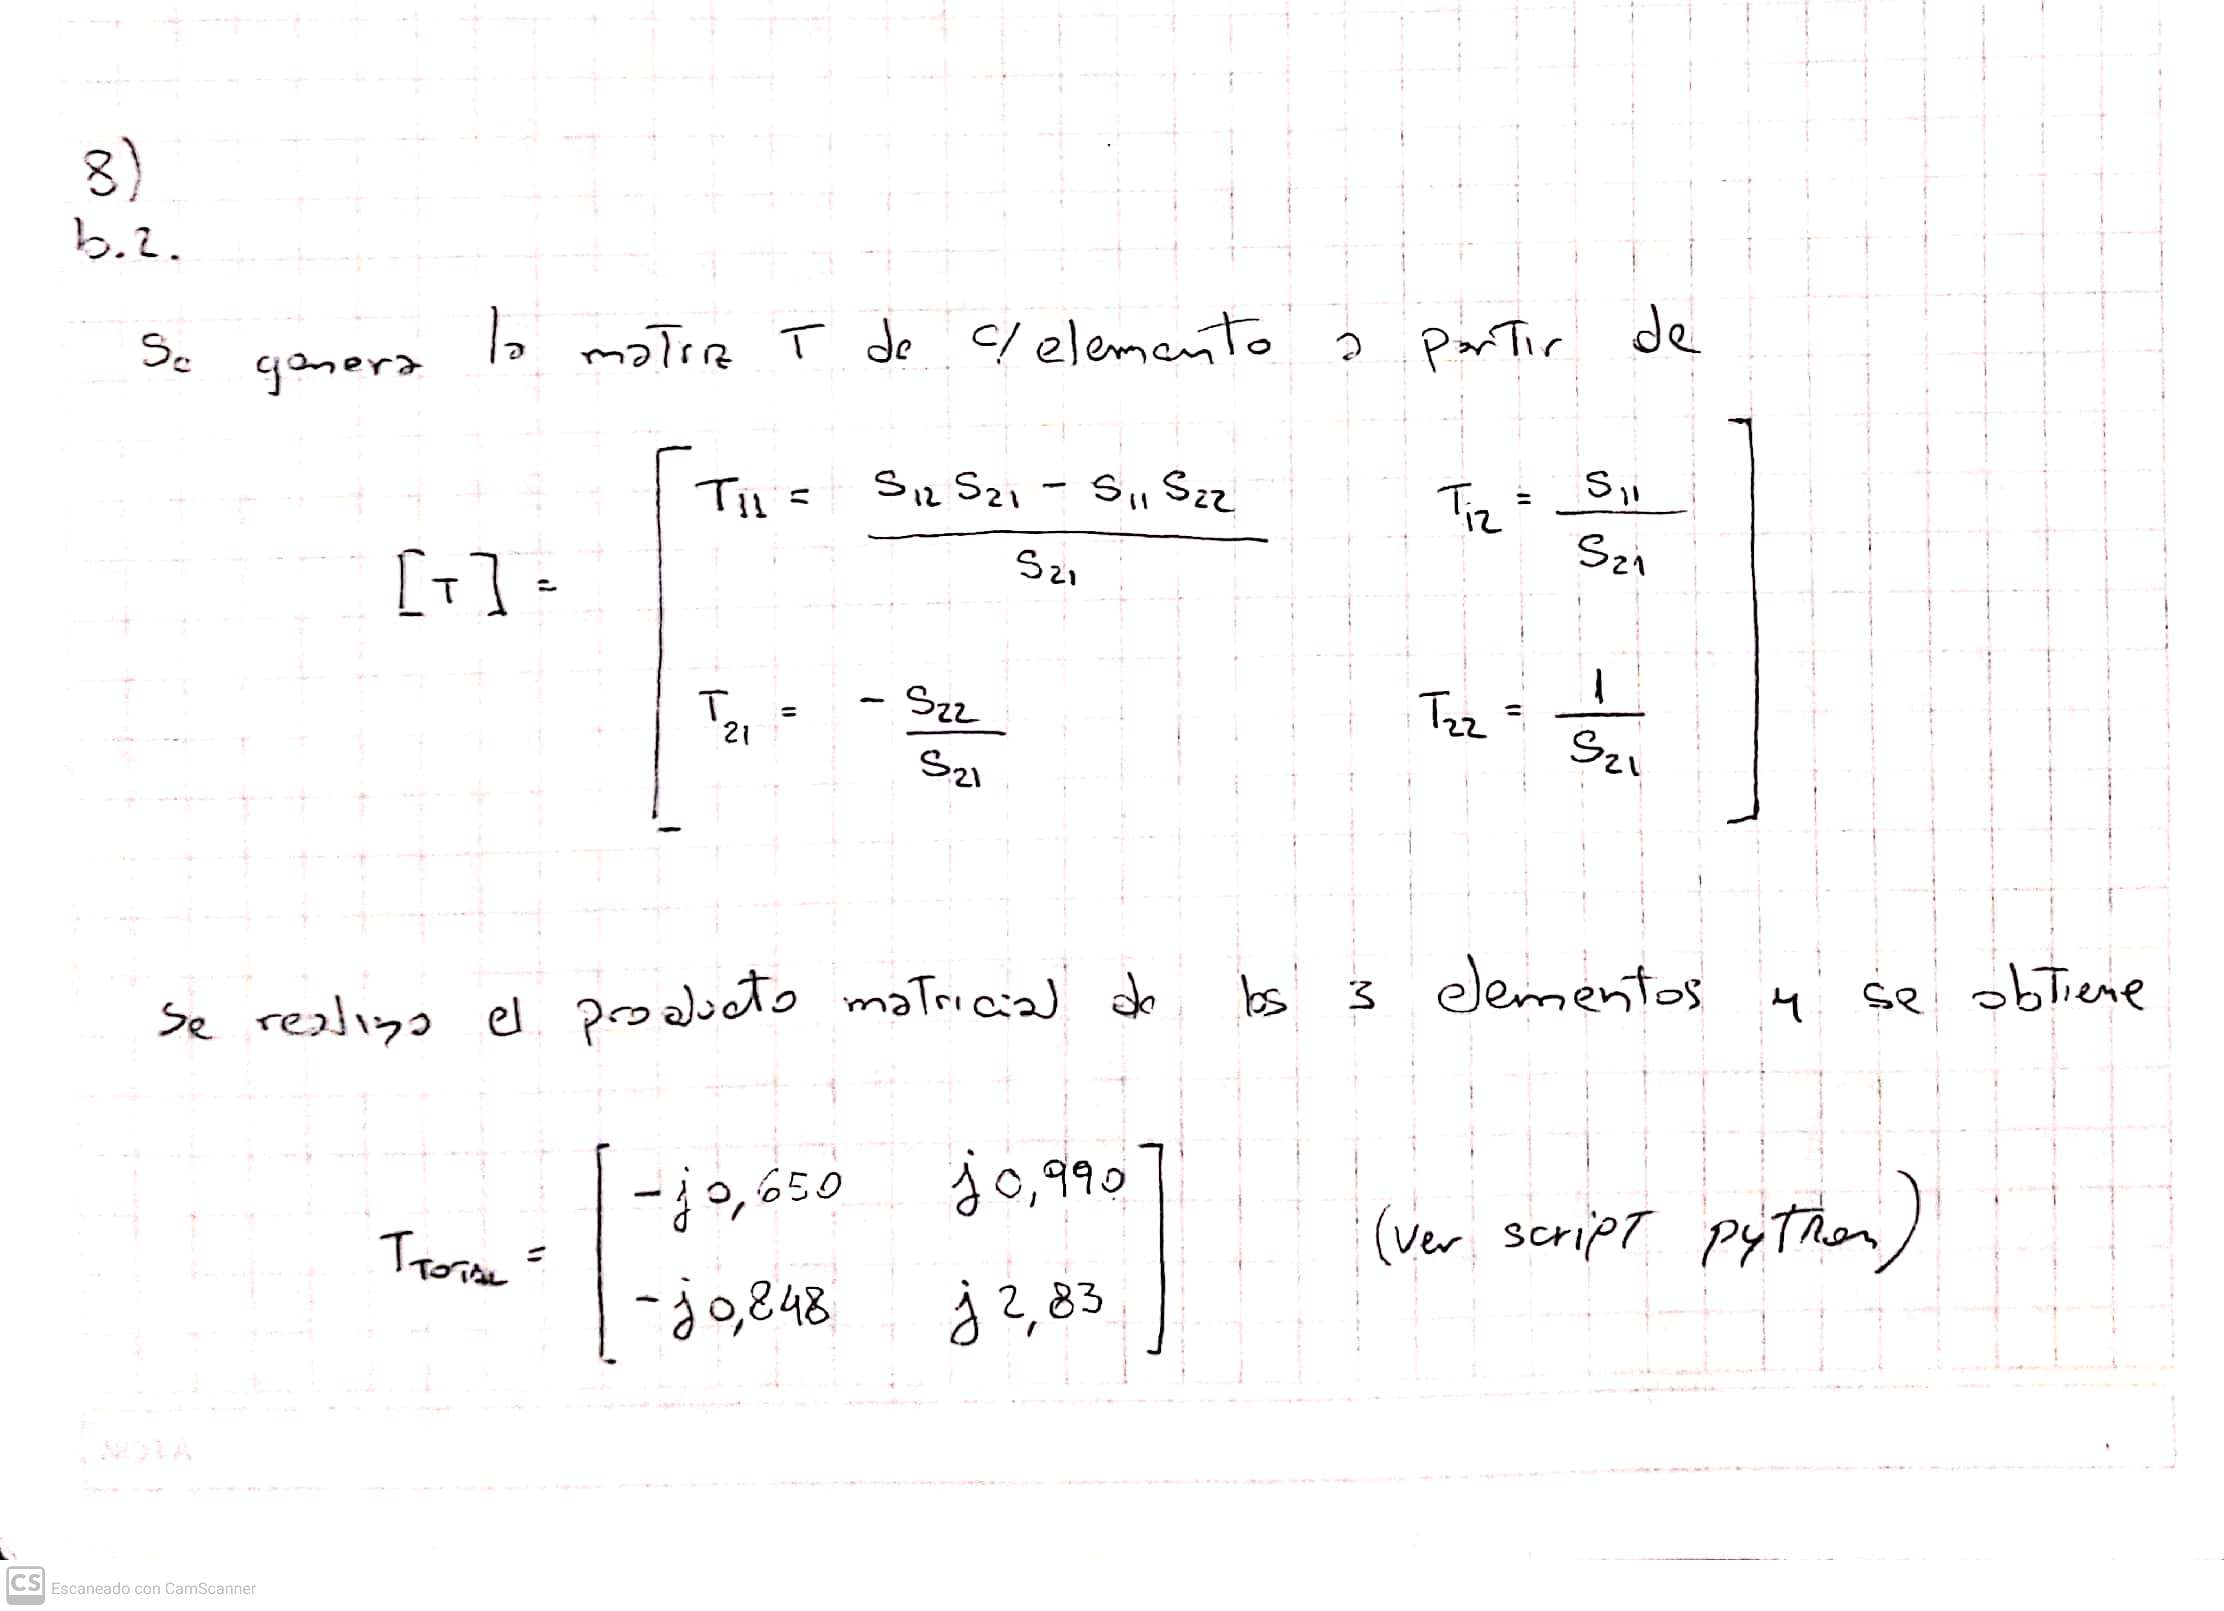 8)
b.2.
Se genera la matriz T de c/elemento a partir de
[T] = [ T11 = (S12 S21 - S11 S22) / S21    T12 = S11 / S21
T21 = - S22 / S21    T22 = 1 / S21 ]
Se realiza el producto matricial de los 3 elementos y se obtiene
TTOTAL = [ -j0,650    j0,990
-j0,848    j2,83 ]    (ver script python)
CS Escaneado con CamScanner